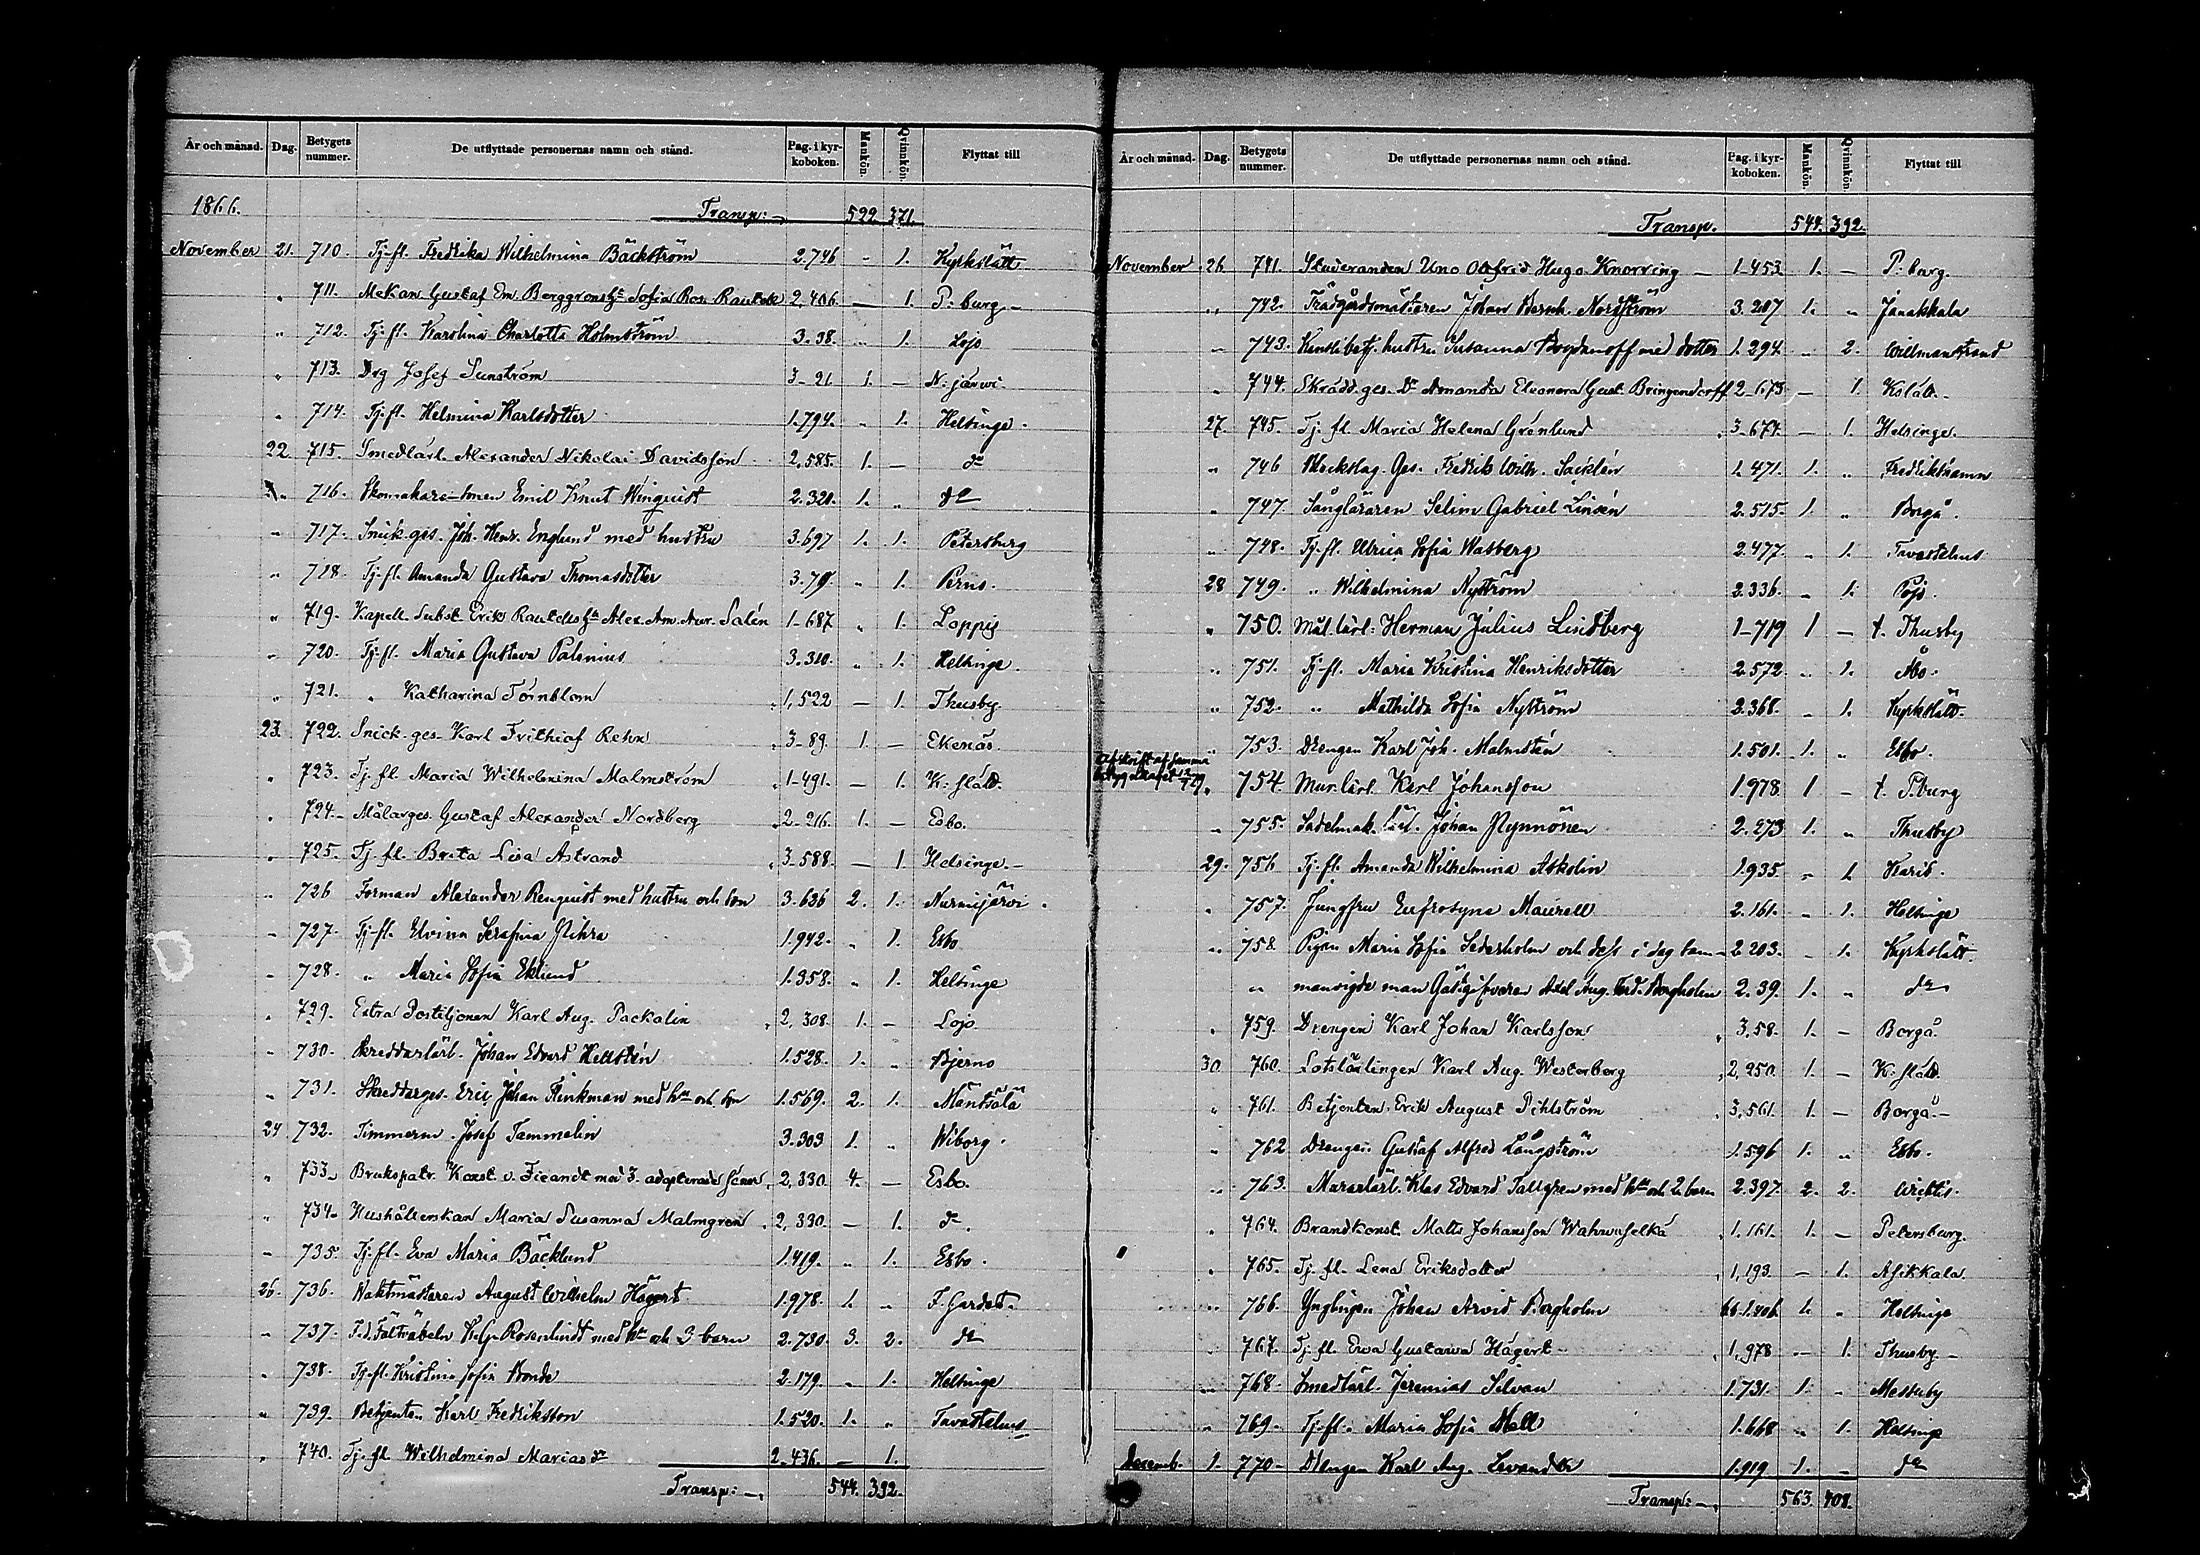 År och månad. Dag. Betygets nummer. De utflyttade personernas namn och stånd. Pag. i kyrkoboken. Mankön. Qvinnkön. Flyttat till
1866. Transp: 522. 371.
November 21. 710. Tj.fl. Fredrika Wilhelmina Bäckström 2.746 " 1. Kyrkslätt
" 711. Mekan. Gustaf Em. Berggrens Sofia Ros. 2.406. — 1. P:burg
" 712. Tj.fl. Karolina Charlotta Holmström 3-38. " 1. Lojo
" 713. Drg Josef Sunström 3-21 1. — N:järwi
" 714. Tj.fl. Helmina Karlsdotter 1.794. " 1. Helsinge.
22 715. Smedlärl. Alexander Nikolai Davidsson 2,585. 1. — do
" 716. Skomakare Emil Knut Winquist 2.321. 1. " do
" 717. Snick.ges. Joh. Henr. Englund med hustru 3.697 1. 1. Petersburg
" 718. Tj.fl. Amanda Gustava Thomasdotter 3.79. " 1. Perno.
" 719. Kapell. Subst. Eriks Alex. Am. Aur. Salén 1-687 " 1. Loppis
" 720. Tj.fl. Maria Gustava Palenius 3.310. " 1. Helsinge
" 721. " Katharina Törnblom 1,522 — 1. Thusby
23. 722. Snick-ges. Karl Frithiof Rehn 3-89. 1. — Ekenäs.
" 723. Tj.fl. Maria Wilhelmina Malmström 1-491. — 1. K:slätt.
" 724. Målarges. Gustaf Alexander Nordberg 2-216. 1. — Esbo.
" 725. Tj.fl. Brita Lisa Åstrand 3.588. — 1 Helsinge.
" 726 Forman Alexander Renquist med hustru och son 3.636 2. 1. Nurmijärvi.
" 727. Tj.fl. Elvina Serafina 1.942. " 1. Esbo
" 728. " Maria Sofia Eklund 1.358. " 1. Helsinge
" 729. Extra Postiljonen Karl Aug. Packalin 2,308. 1. — Lojo
" 730. Skreddarlärl. Johan Edvard Hellstén 1.528. 1. " Bjerno
" 731. Skreddarges. Eric Johan Flinkman med hu och son 1.569. 2. 1. Mäntsälä
24 732. Timmerm. Josef Tammelin 3.303 1. " Wiborg.
" 733. Brukspatr. Konst. v. Fieandt med 3. adopterade söner 2,330. 4. — Esbo.
" 734. Hushållerskan Maria Susanna Malmgren 2,330. — 1. do.
" 735. Tj.fl. Eva Maria Bäcklund 1.419. " 1. Esbo.
26. 736. Vaktmästaren August Wilhelm Hägert 1.978. 1. " F. Gardet.
" 737. Rosenlindt med hu och 3 barn 2.730. 3. 2. do
" 738. Tj.fl. Kristina Sofia Bonde 2.179. " 1. Helsinge
" 739. Betjenten Karl Fredriksson 1.520. 1. " Tavastehus
" 740. Tj.fl. Wilhelmina Mariasdr 2.436. — 1.
Transp: 544. 392.
År och månad. Dag. Betygets nummer. De utflyttade personernas namn och stånd. Pag. i kyrkoboken. Mankön. Qvinnkön. Flyttat till
Transp. 544. 392.
November 26 741. Studeranden Uno Hugo Knorring 1-453 1. — P:burg.
" 742. Trädgårdsmästaren Johan Bernh. Nordström 3.217 1. " Janakkala
" 743. hustru Susanna Bogdanoff med dotter 1.294. " 2. Willmanstrand
" 744. Skrädd.ges. Dr Amanda Eleonora Gust. Bringendorff 2-673 — 1. Kslätt.
27. 745. Tj.fl. Maria Helena Grönlund 3-674. — 1. Helsinge.
" 746 Ges. Fredrik Wilh. Sacklén 1.471. 1. " Fredrikshamn
" 747. Sångläraren Selim Gabriel Linsén 2.515. 1. " Borgå.
" 748. Tj.fl. Ulrica Sofia Wasberg 2.477. " 1. Tavastehus
28 749. " Wilhelmina Nyström 2.336. " 1. Pojo.
" 750. Mål.lärl. Herman Julius Lindberg 1-719 1 — t. Thusby
" 751. Tj.fl. Maria Kristina Henriksdotter 2.572. " 1. Åbo.
" 752. " Mathilda Sofia Nyström 2.368. " 1. Kyrkslätt.
" 753. Drengen Karl Joh. Malmstén 1.501. 1. " Esbo.
Afskrift af samma
" 754. Mur.lärl. Karl Johansson 1.978 1 — t. P.burg
" 755. Sadelmak. lärl. Johan Nynnönen 2.273 1. " Thusby
29. 756 Tj.fl. Amanda Wilhelmina Askolin 1.935 " 1 Karis.
" 757. Jungfru Eufrosyne Maurell 2.161. " 1. Helsinge
" 758 Pigan Maria Sofia Sederholm och dess i dag sam- 2.203. " 1. Kyrkslätt.
" manvigde man Gästgifvaren Axel Aug. Ferd. Borgholm 2.39. 1. " do
" 759. Drengen Karl Johan Karlsson 3,58. 1. — Borgå.
30 760. Lotslärlingen Karl Aug. Westerberg 2,250. 1. — K:slätt.
" 761. Betjenten Erik August Pihlström 3,561. 1. — Borgå.
" 762 Drengen Gustaf Alfred Långström 1.596 1. " Esbo.
" 763. Murarelärl. Klas Edvard Tallgren med hu och 2 barn 2.397. 2. 2. Wichtis.
" 764. Brandkonst. Matts Johansson Wahruselkä 1.161. 1. — Petersburg.
" 765. Tj.fl. Lena Eriksdotter 1,193. — 1. Asikkala.
" 766. Ynglingen Johan Arvid Borgholm 1.406. 1. " Helsinge
" 767. Tj.fl. Eva Gustawa Hägert 1,978 — 1. Thusby
" 768. Smedlärl. Jeremias Silvan 1.731. 1. " Messuby
" 769. Tj.fl. Maria Sofia Mall 1.668 " 1. Helsinge
Decemb. 1. 770. Drengen Karl Aug. Levander 1.919 1. — do
Transp: 563. 408.